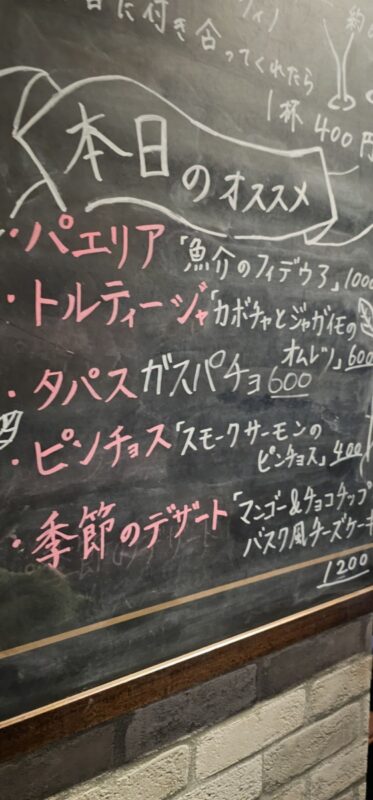 に付き合ってくれたら
1杯 400円
本日のオススメ
・パエリア「魚介のフィデウア」1000
・トルティージャ「カボチャとジャガイモの
オムレツ」600
・タパス ガスパチョ 600
・ピンチョス「スモークサーモンの
ピンチョス」400
・季節のデザート「マンゴー&チョコチップ
バスク風チーズケーキ
1200